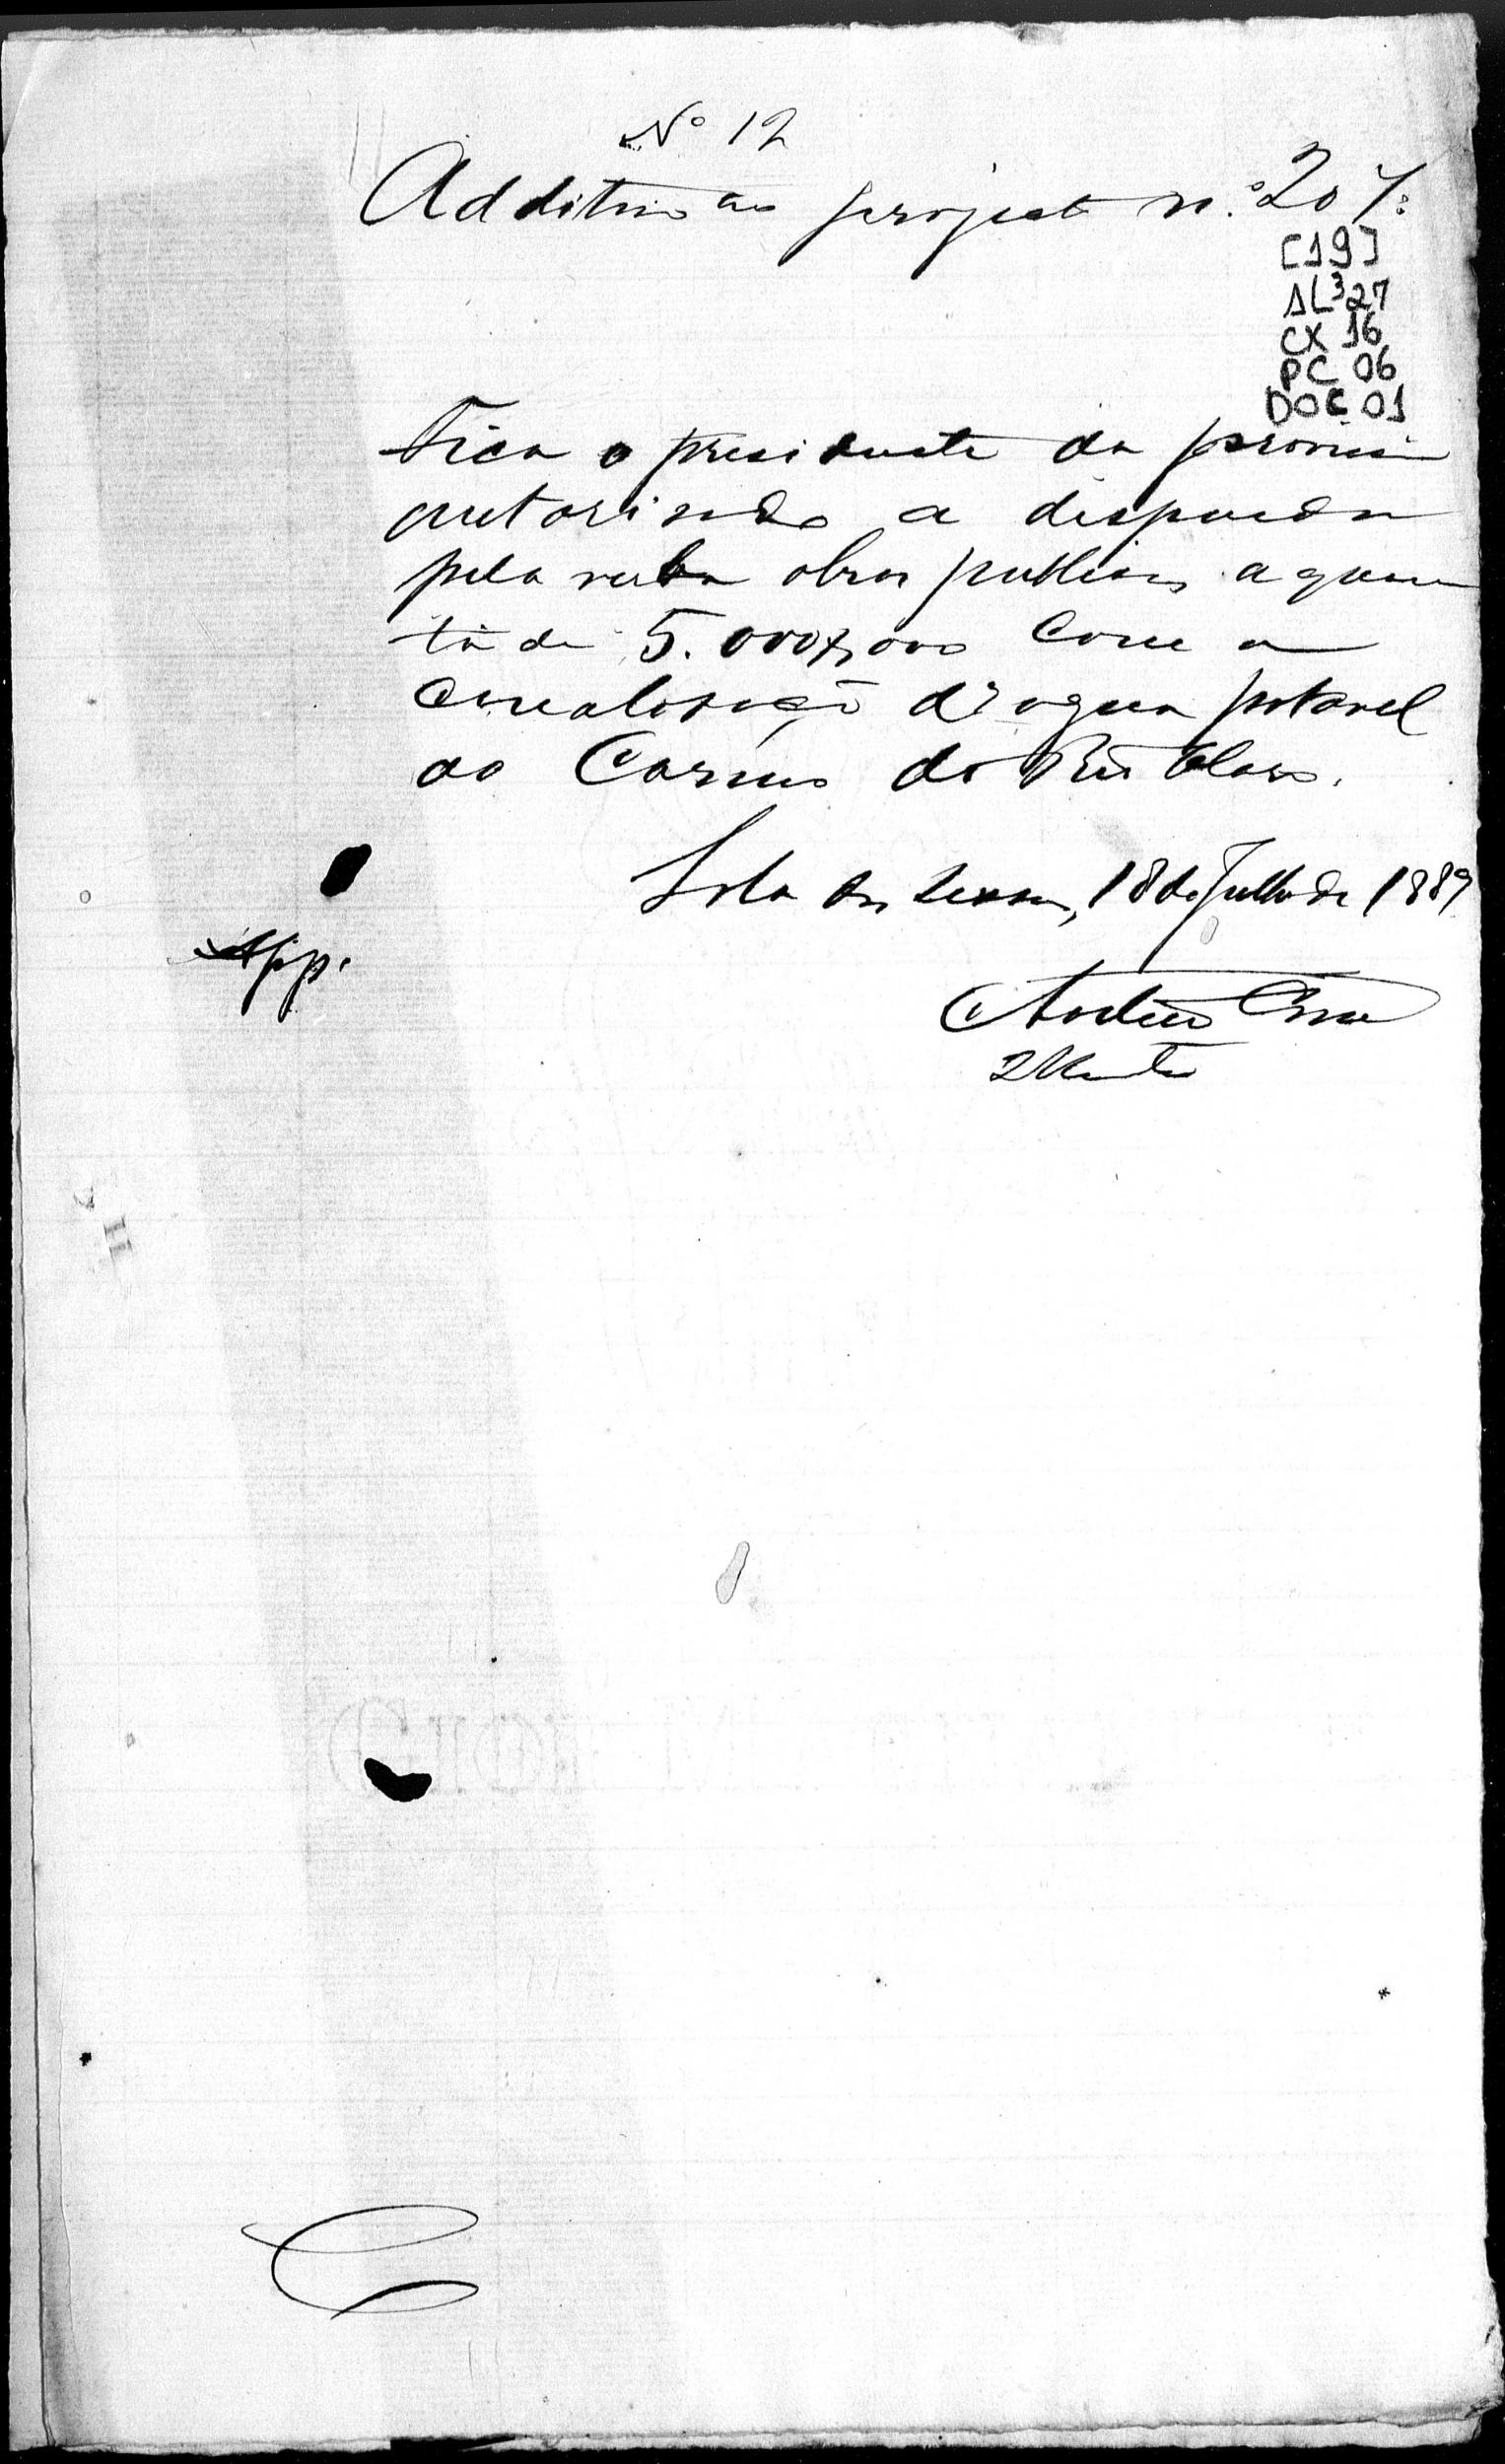 Nº 12
Additivo ao projecto n.º 207:
[19]
AL³27
CX 16
PC 06
DOC 01
Fica o presidente da provincia
autorisado a dispender
pela verba obras publicas a quan
tia de 5.000$000 com a
canalisação d'agua potavel
ao Carmo do Rio Claro.
Sala das Sessões, 18 de Julho de 1889
App.